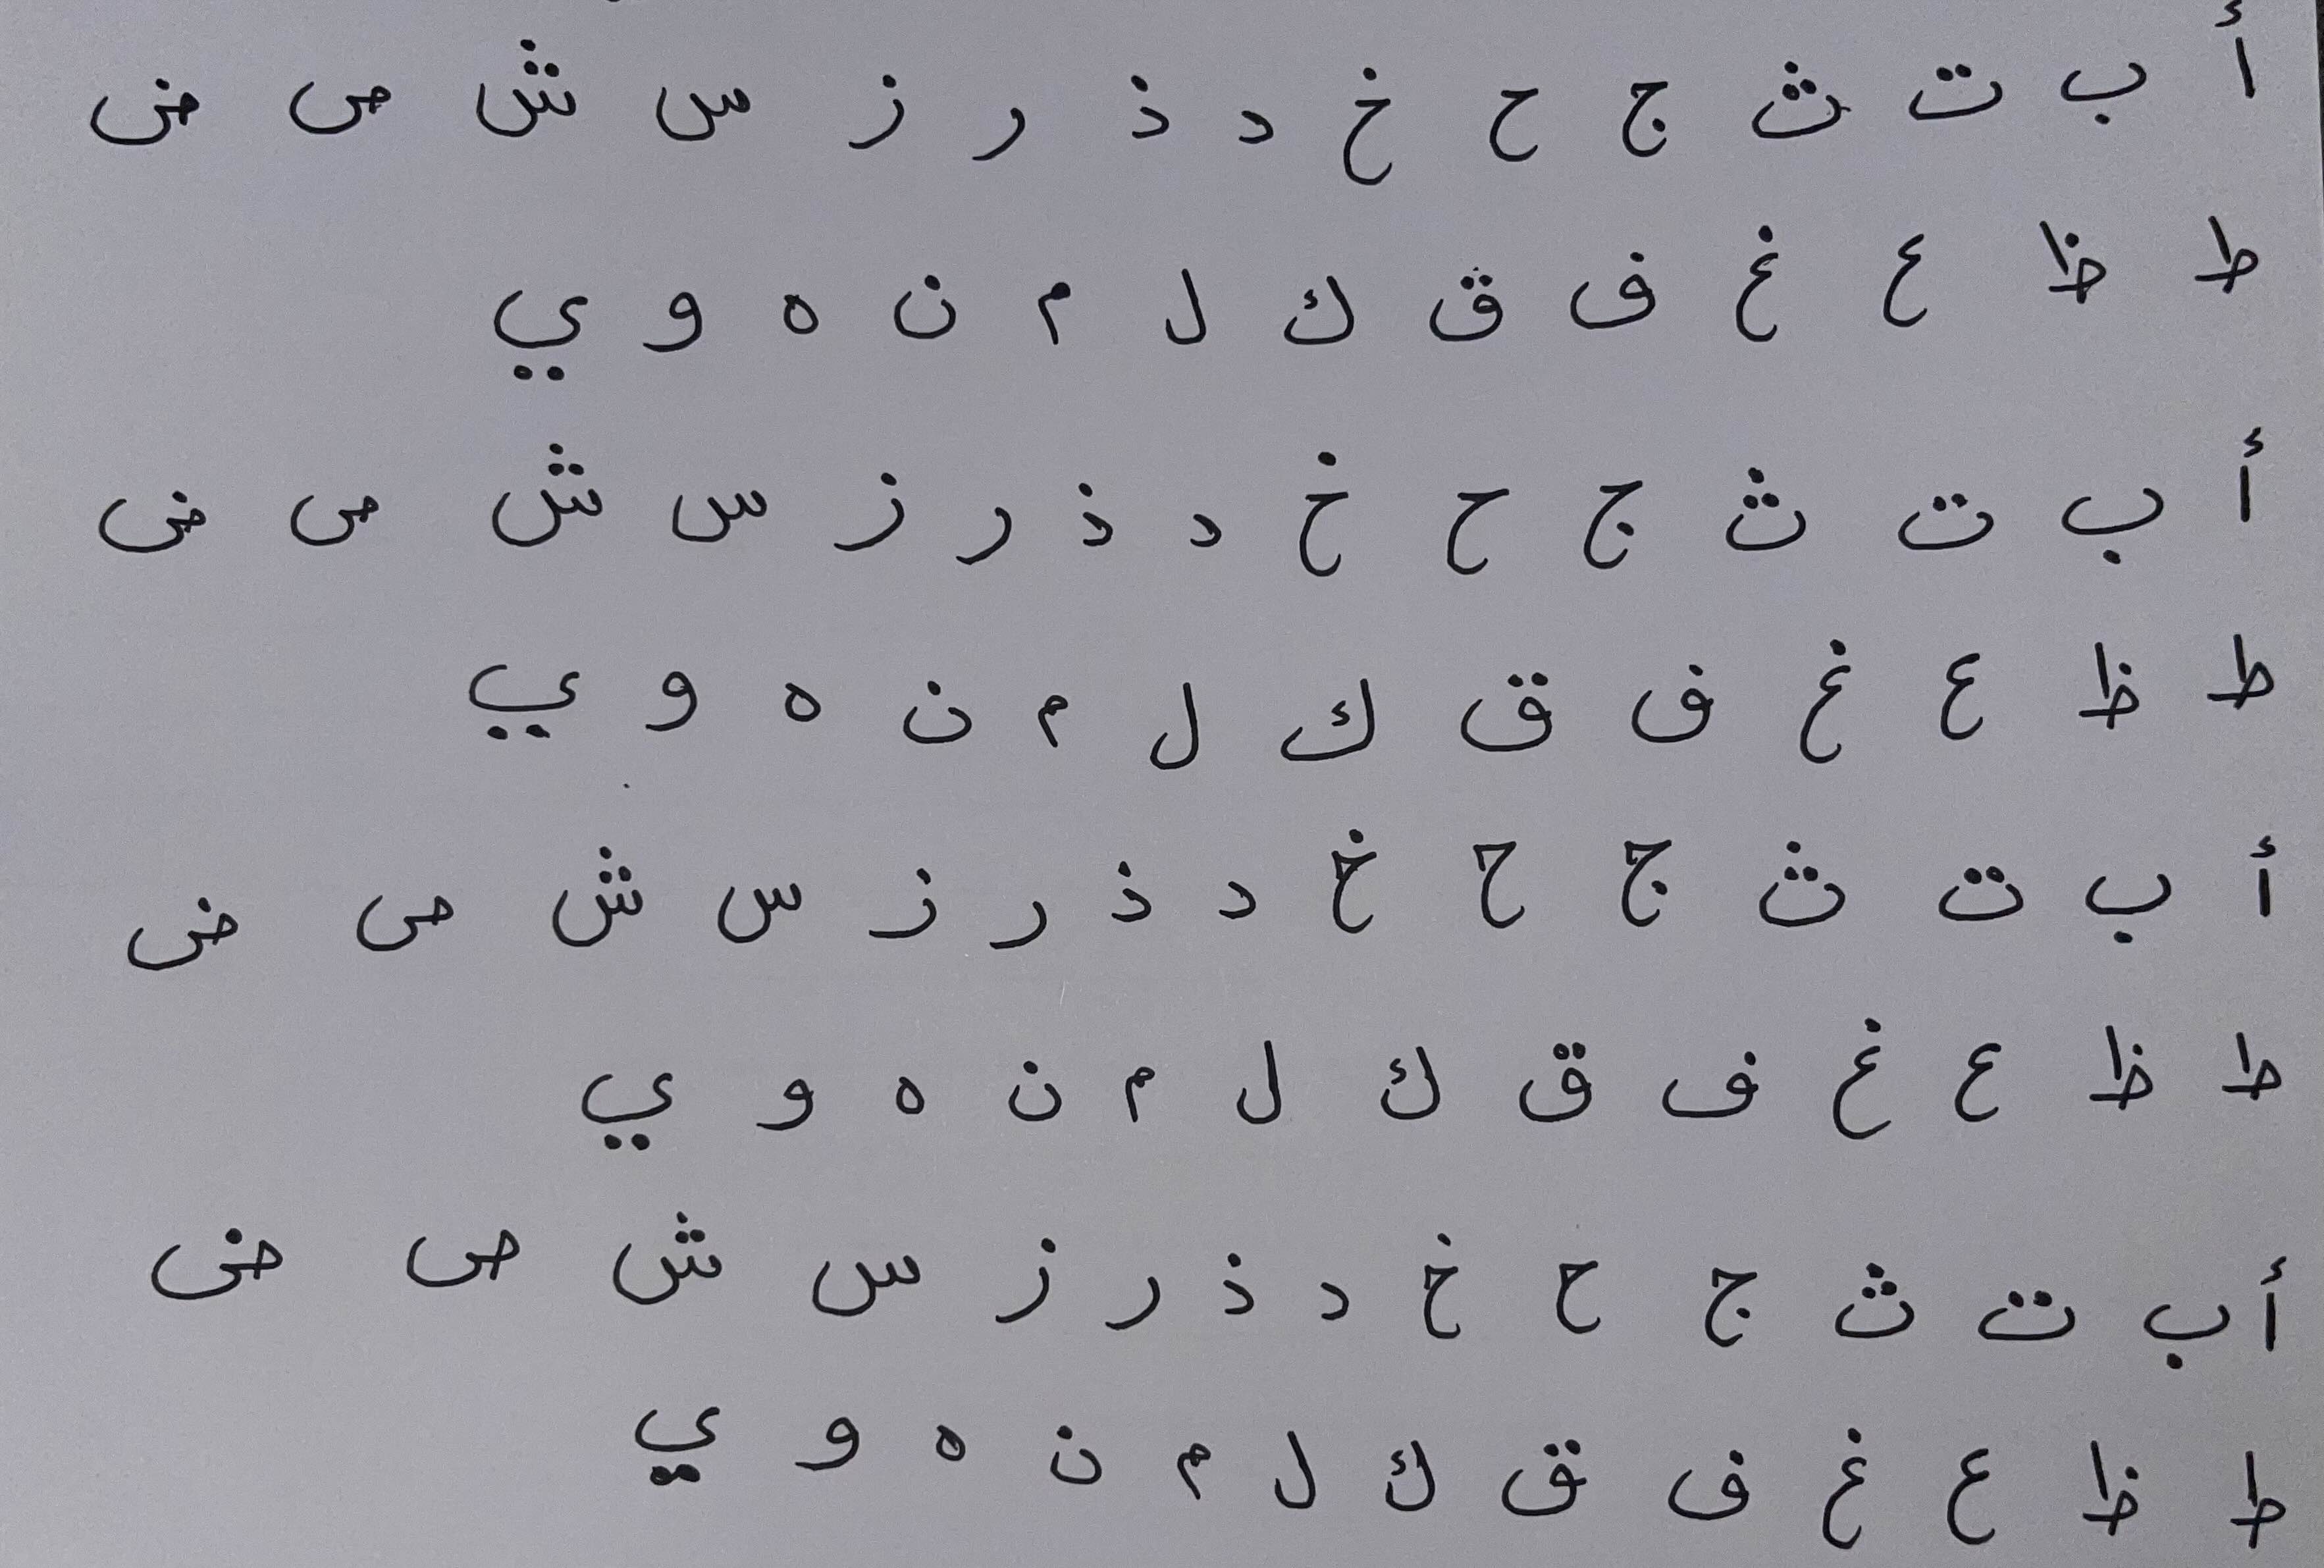 أ ب ت ث ج ح خ د ذ ر ز س ش ص ض
ط ظ ع غ ف ق ك ل م ن ه و ي
أ ب ت ث ج ح خ د ذ ر ز س ش ص ض
ط ظ ع غ ف ق ك ل م ن ه و ي
أ ب ت ث ج ح خ د ذ ر ز س ش ص ض
ط ظ ع غ ف ق ك ل م ن ه و ي
أ ب ت ث ج ح خ د ذ ر ز س ش ص ض
ط ظ ع غ ف ق ك ل م ن ه و ي